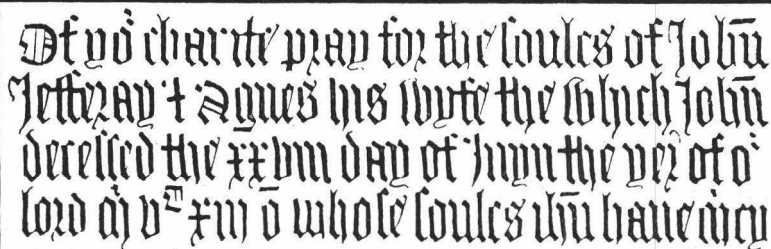 Of yoʳ charite pray for the soules of John̄
Jefferay & Agnes his wyfe the which John̄
decessed the xxviii day of Juyn the yer of oʳ
lord m̄ vᶜ xiii ō whose soules ihū haue m̄cy